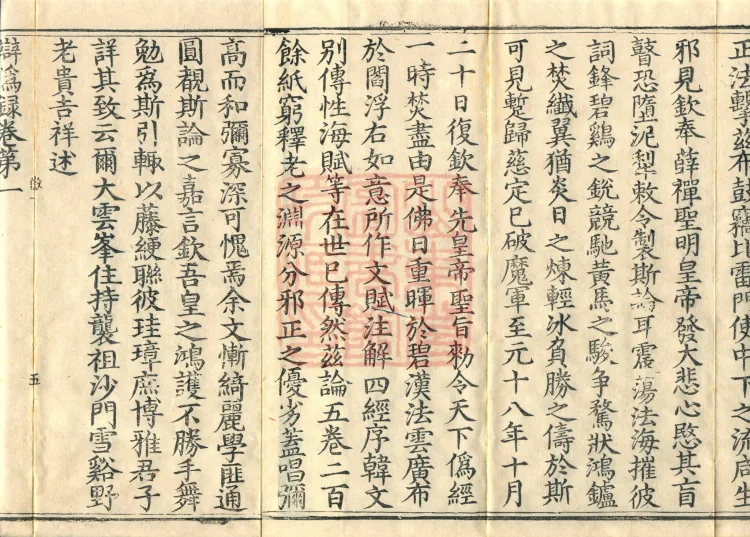 正法擊茲布鼓竊比雷門使中下之流咸生
邪見欽奉薛禪聖明皇帝發大悲心愍其盲
瞽恐墮泥犁敕令製斯論耳震蕩法海摧彼
詞鋒碧鷄之銳競馳黃馬之駿争騖狀鴻鑪
之焚纖翼猶炎日之煉輕冰負勝之儔於斯
可見蹔歸慈定已破魔軍至元十八年十月
二十日復欽奉先皇帝聖旨勑令天下僞經
一時焚盡由是佛日重暉於碧漢法雲廣布
於閻浮右如意所作文賦注解四經序韓文
別傳性海賦等在世已傳然茲論五卷二百
餘紙窮釋老之淵源分邪正之優劣蓋唱彌
高而和彌寡深可愧焉余文慚綺麗學匪通
圓覩斯論之嘉言欽吾皇之鴻護不勝手舞
勉爲斯引輙以藤綆聯彼珪璋庶博雅君子
詳其致云爾大雲峯住持襲祖沙門雪谿野
老貴吉祥述
辯僞録卷第一
五